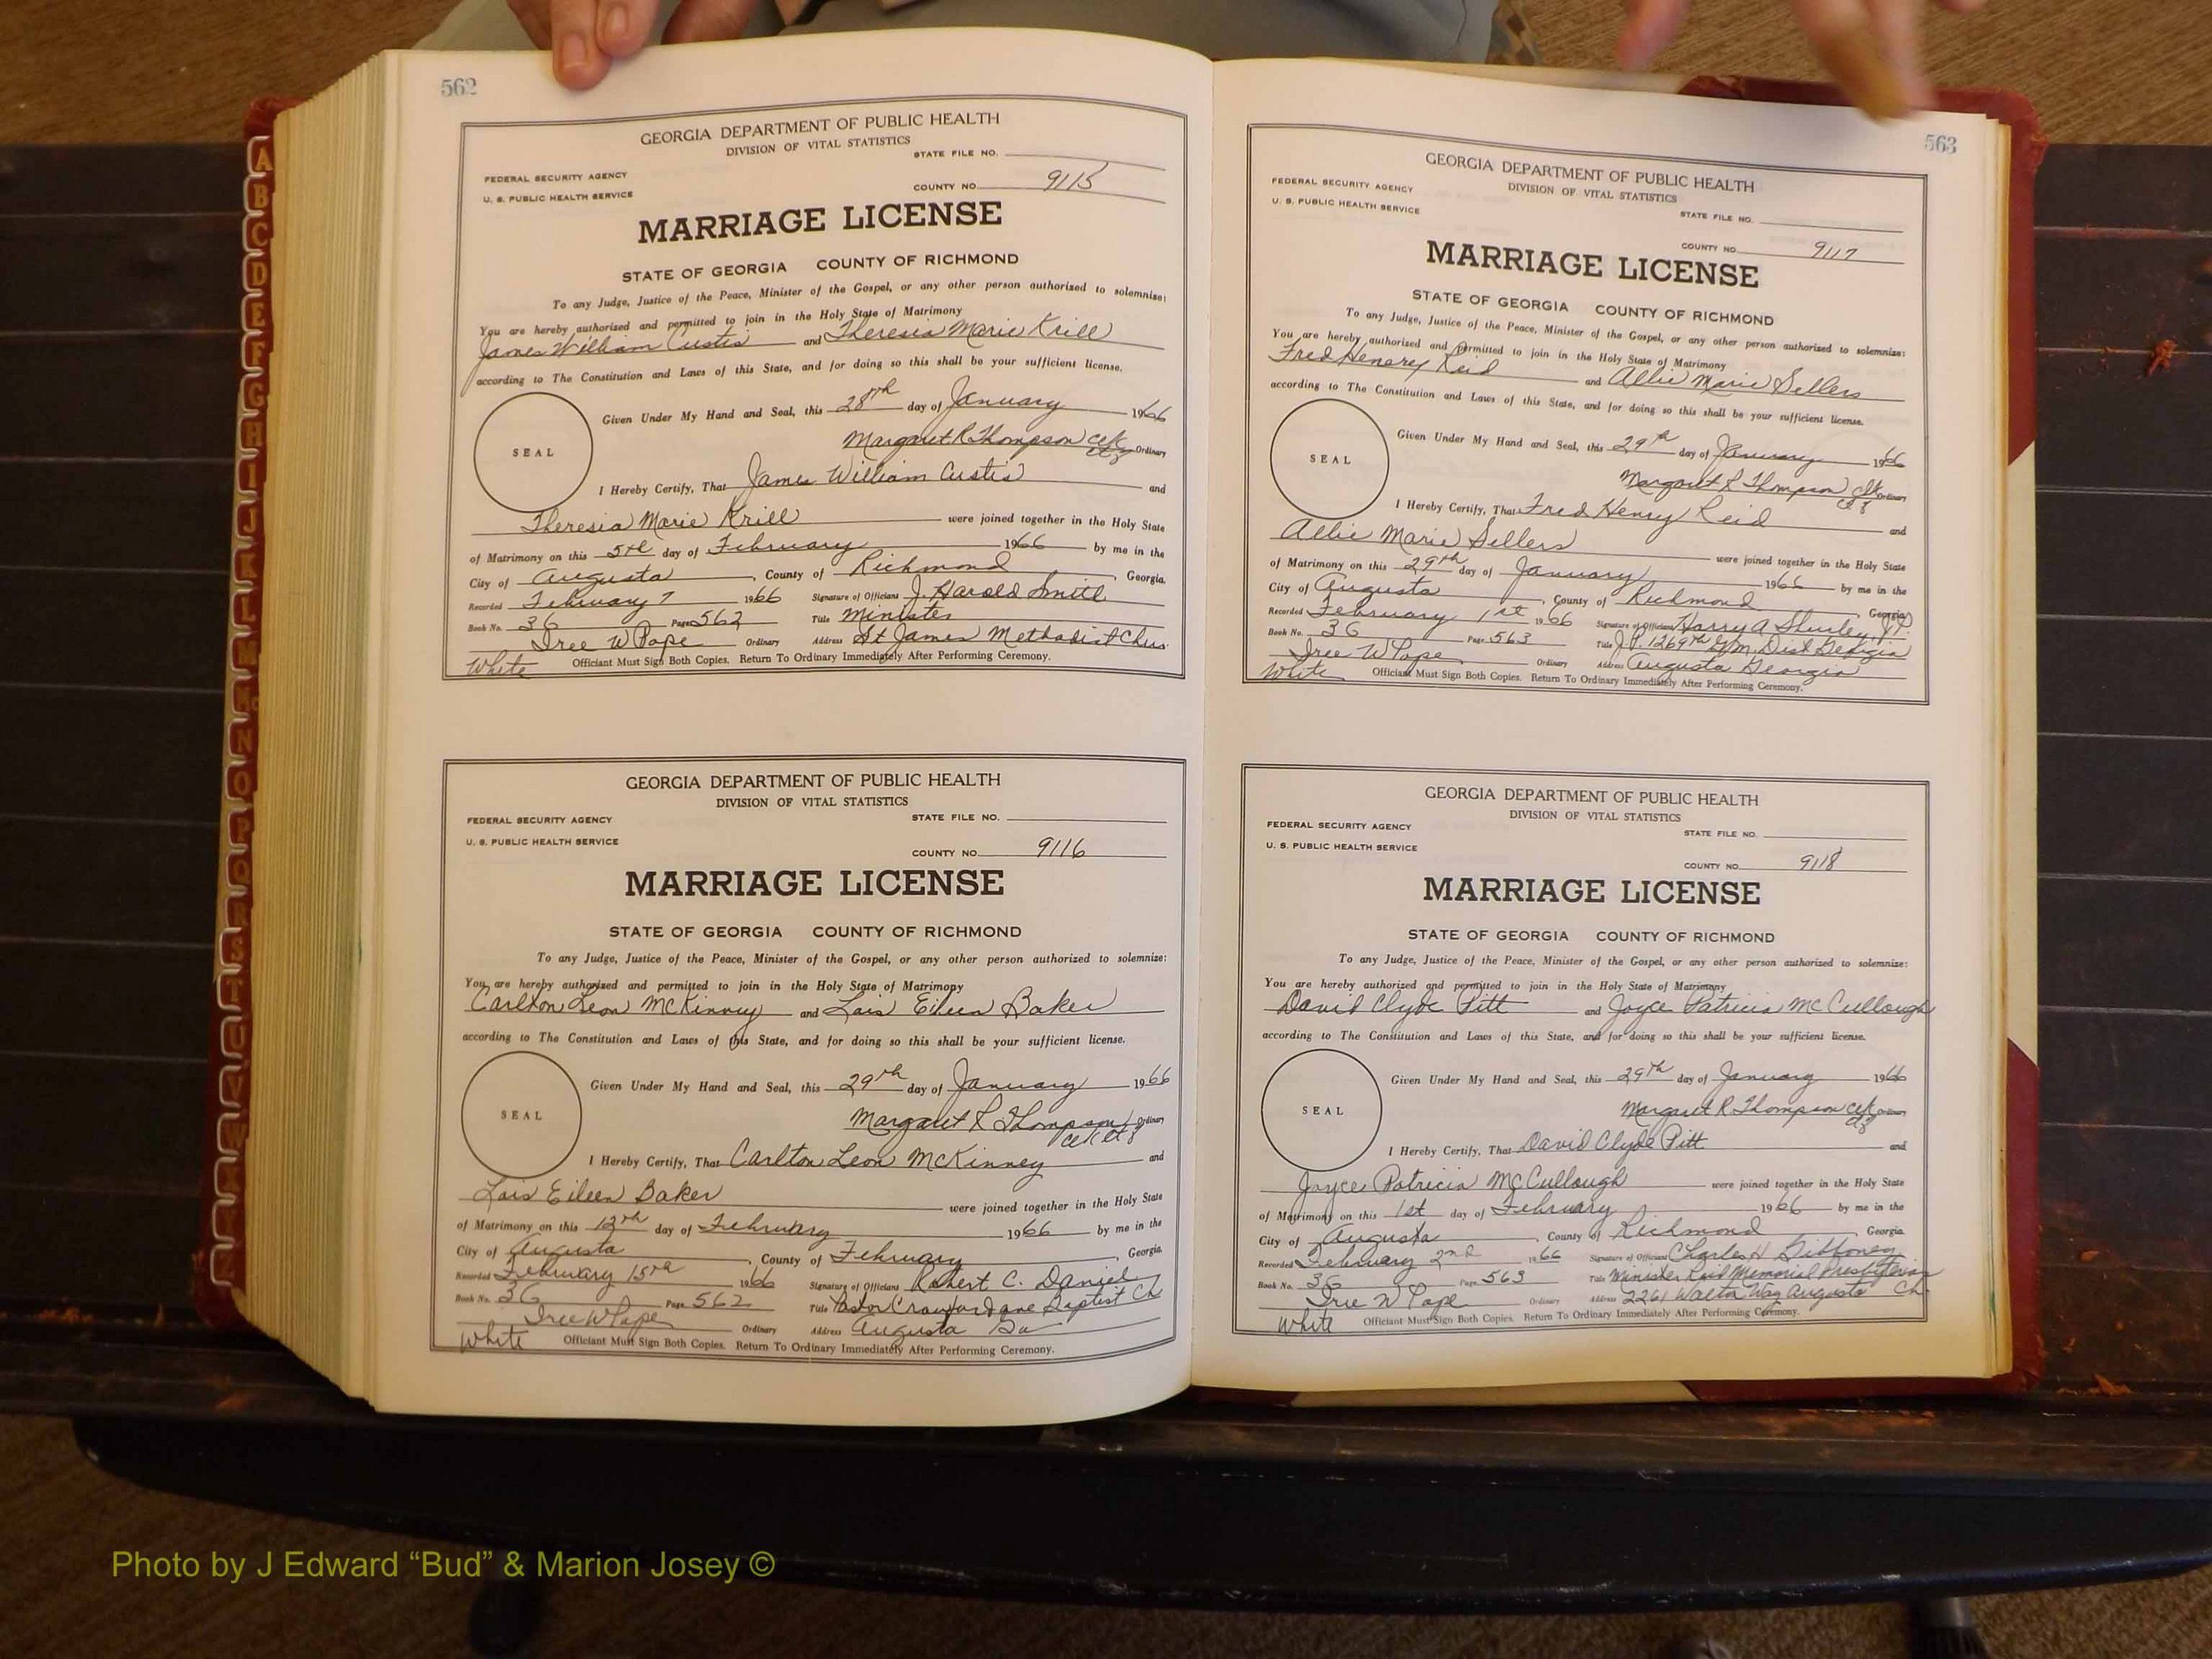 562
GEORGIA DEPARTMENT OF PUBLIC HEALTH
DIVISION OF VITAL STATISTICS
STATE FILE NO.
FEDERAL SECURITY AGENCY
U. S. PUBLIC HEALTH SERVICE
COUNTY NO. 9115
MARRIAGE LICENSE
STATE OF GEORGIA COUNTY OF RICHMOND
To any Judge, Justice of the Peace, Minister of the Gospel, or any other person authorized to solemnize:
You are hereby authorized and permitted to join in the Holy State of Matrimony
James William Custis and Theresia Marie Krill
according to The Constitution and Laws of this State, and for doing so this shall be your sufficient license.
Given Under My Hand and Seal, this 28th day of January 1966
SEAL
Margaret R Thompson Clk Ordinary
I Hereby Certify, That James William Custis and
Theresia Marie Krill were joined together in the Holy State
of Matrimony on this 5th day of February 1966 by me in the
City of Augusta, County of Richmond, Georgia.
Recorded February 7 1966 Signature of Officians J. Harold Smith
Book No. 3G Page 562 Title Minister
Iree W Pope Ordinary Address St James Methodist Chur
White Officiant Must Sign Both Copies. Return To Ordinary Immediately After Performing Ceremony.
GEORGIA DEPARTMENT OF PUBLIC HEALTH
DIVISION OF VITAL STATISTICS
STATE FILE NO.
FEDERAL SECURITY AGENCY
U. S. PUBLIC HEALTH SERVICE
COUNTY NO. 9116
MARRIAGE LICENSE
STATE OF GEORGIA COUNTY OF RICHMOND
To any Judge, Justice of the Peace, Minister of the Gospel, or any other person authorized to solemnize:
You are hereby authorized and permitted to join in the Holy State of Matrimony
Carlton Leon McKinney and Lois Eileen Baker
according to The Constitution and Laws of this State, and for doing so this shall be your sufficient license.
Given Under My Hand and Seal, this 29th day of January 1966
SEAL
Margaret R Thompson Ordinary
Clk
I Hereby Certify, That Carlton Leon McKinney and
Lois Eileen Baker were joined together in the Holy State
of Matrimony on this 12th day of February 1966 by me in the
City of Augusta, County of February, Georgia.
Recorded February 15th 1966 Signature of Officians Robert C. Daniel
Book No. 3G Page 562 Title Pastor Crawford ave Baptist Ch
Iree W Pope Ordinary Address Augusta Ga
White Officiant Must Sign Both Copies. Return To Ordinary Immediately After Performing Ceremony.
563
GEORGIA DEPARTMENT OF PUBLIC HEALTH
DIVISION OF VITAL STATISTICS
FEDERAL SECURITY AGENCY
U. S. PUBLIC HEALTH SERVICE
STATE FILE NO.
COUNTY NO. 9117
MARRIAGE LICENSE
STATE OF GEORGIA COUNTY OF RICHMOND
To any Judge, Justice of the Peace, Minister of the Gospel, or any other person authorized to solemnize:
You are hereby authorized and Permitted to join in the Holy State of Matrimony
Fred Henery Reid and Allie Marie Sellers
according to The Constitution and Laws of this State, and for doing so this shall be your sufficient license.
Given Under My Hand and Seal, this 29th day of January 1966
SEAL
Margaret R Thompson Clk Ordinary
I Hereby Certify, That Fred Henry Reid and
Allie Marie Sellers were joined together in the Holy State
of Matrimony on this 29th day of January 1966 by me in the
City of Augusta, County of Richmond, Georgia
Recorded February 1st 1966 Signature of Officians Harry A Shurley, J.P.
Book No. 3G Page 563 Title J.P. 1269th G.M. Dist Georgia
Iree W Pope Ordinary Address Augusta Georgia
White Officiant Must Sign Both Copies. Return To Ordinary Immediately After Performing Ceremony.
GEORGIA DEPARTMENT OF PUBLIC HEALTH
DIVISION OF VITAL STATISTICS
FEDERAL SECURITY AGENCY
STATE FILE NO.
U. S. PUBLIC HEALTH SERVICE
COUNTY NO. 9118
MARRIAGE LICENSE
STATE OF GEORGIA COUNTY OF RICHMOND
To any Judge, Justice of the Peace, Minister of the Gospel, or any other person authorized to solemnize:
You are hereby authorized and permitted to join in the Holy State of Matrimony
David Clyde Pitt and Joyce Patricia McCullough
according to The Constitution and Laws of this State, and for doing so this shall be your sufficient license.
Given Under My Hand and Seal, this 29th day of January 1966
SEAL
Margaret R Thompson Clk Ordinary
I Hereby Certify, That David Clyde Pitt and
Joyce Patricia McCullough were joined together in the Holy State
of Matrimony on this 1st day of February 1966 by me in the
City of Augusta, County of Richmond, Georgia.
Recorded February 2nd 1966 Signature of Officians Charles H Gibboney
Book No. 3G Page 563 Title Minister Reid Memorial Presbyterian
Iree W Pope Ordinary Address 2261 Walton Way Augusta Ch.
White Officiant Must Sign Both Copies. Return To Ordinary Immediately After Performing Ceremony.
A
B
C
D
E
F
G
H
I
J
K
L
M
Mc
N
O
P
Q
R
S
T
U
V
W
Photo by J Edward “Bud” & Marion Josey ©